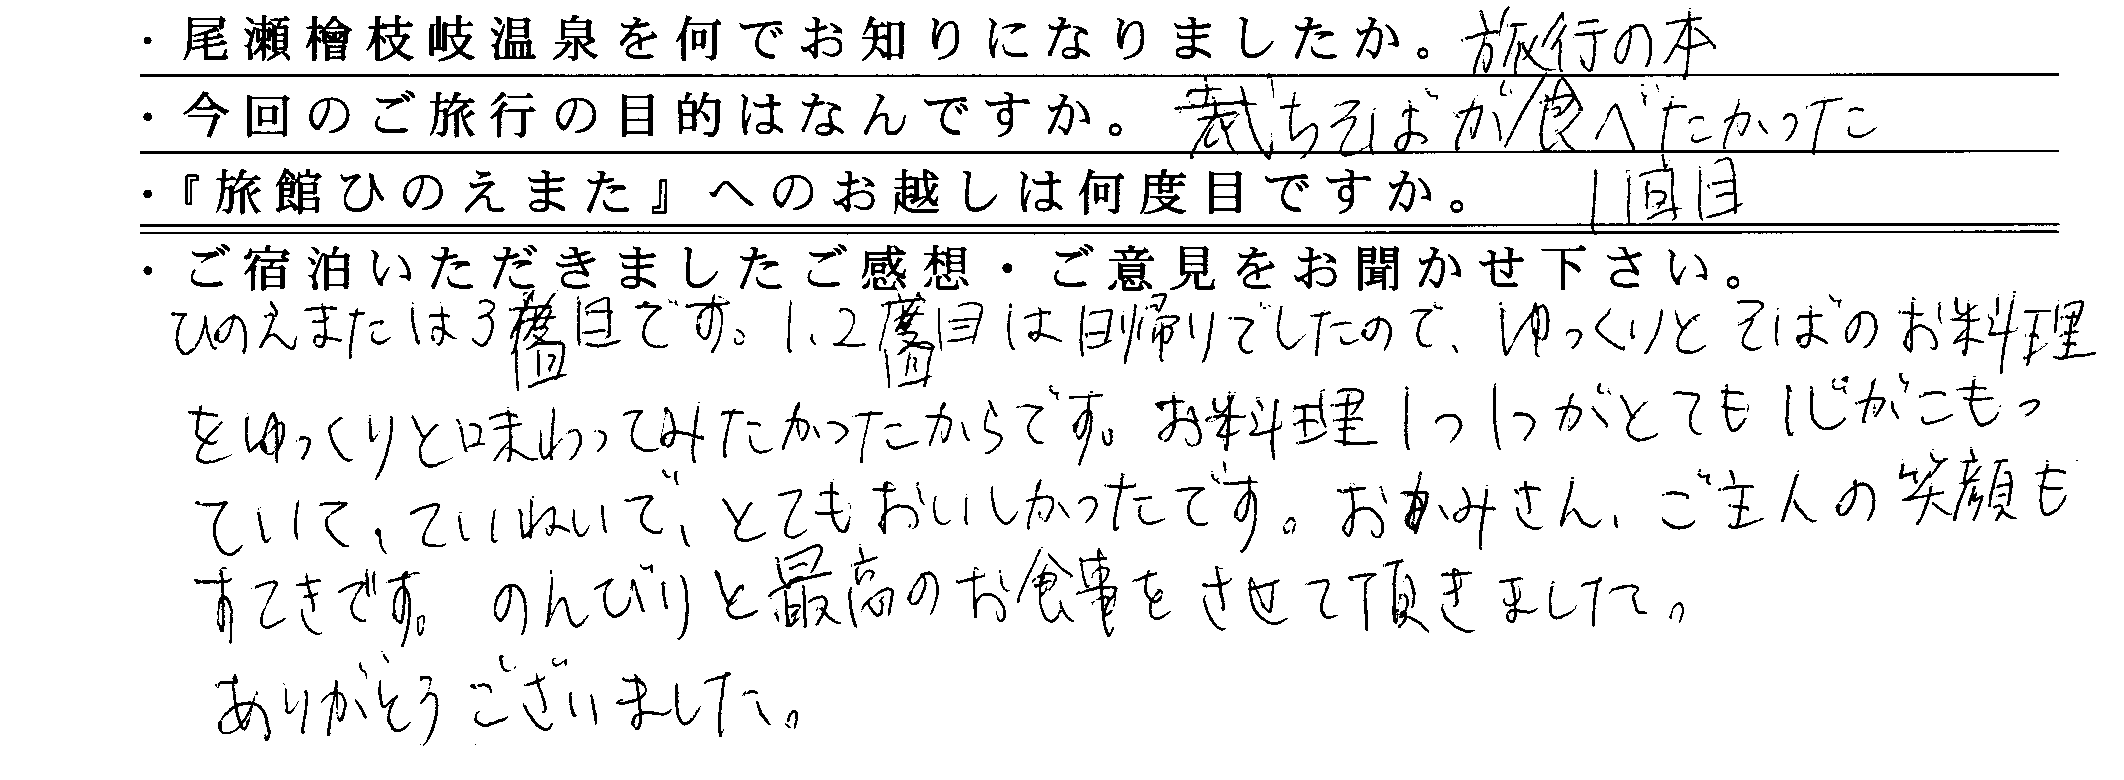 ・尾瀬檜枝岐温泉を何でお知りになりましたか。旅行の本
・今回のご旅行の目的はなんですか。裁ちそばが食べたかった
・『旅館ひのえまた』へのお越しは何度目ですか。 1回目
・ご宿泊いただきましたご感想・ご意見をお聞かせ下さい。
ひのえまたは3回目です。1、2回目は日帰りでしたので、ゆっくりとそばのお料理
をゆっくりと味わってみたかったからです。お料理1つ1つがとても心がこもっ
ていて、ていねいで、とてもおいしかったです。おかみさん、ご主人の笑顔も
すてきです。のんびりと最高のお食事をさせて頂きました。
ありがとうございました。